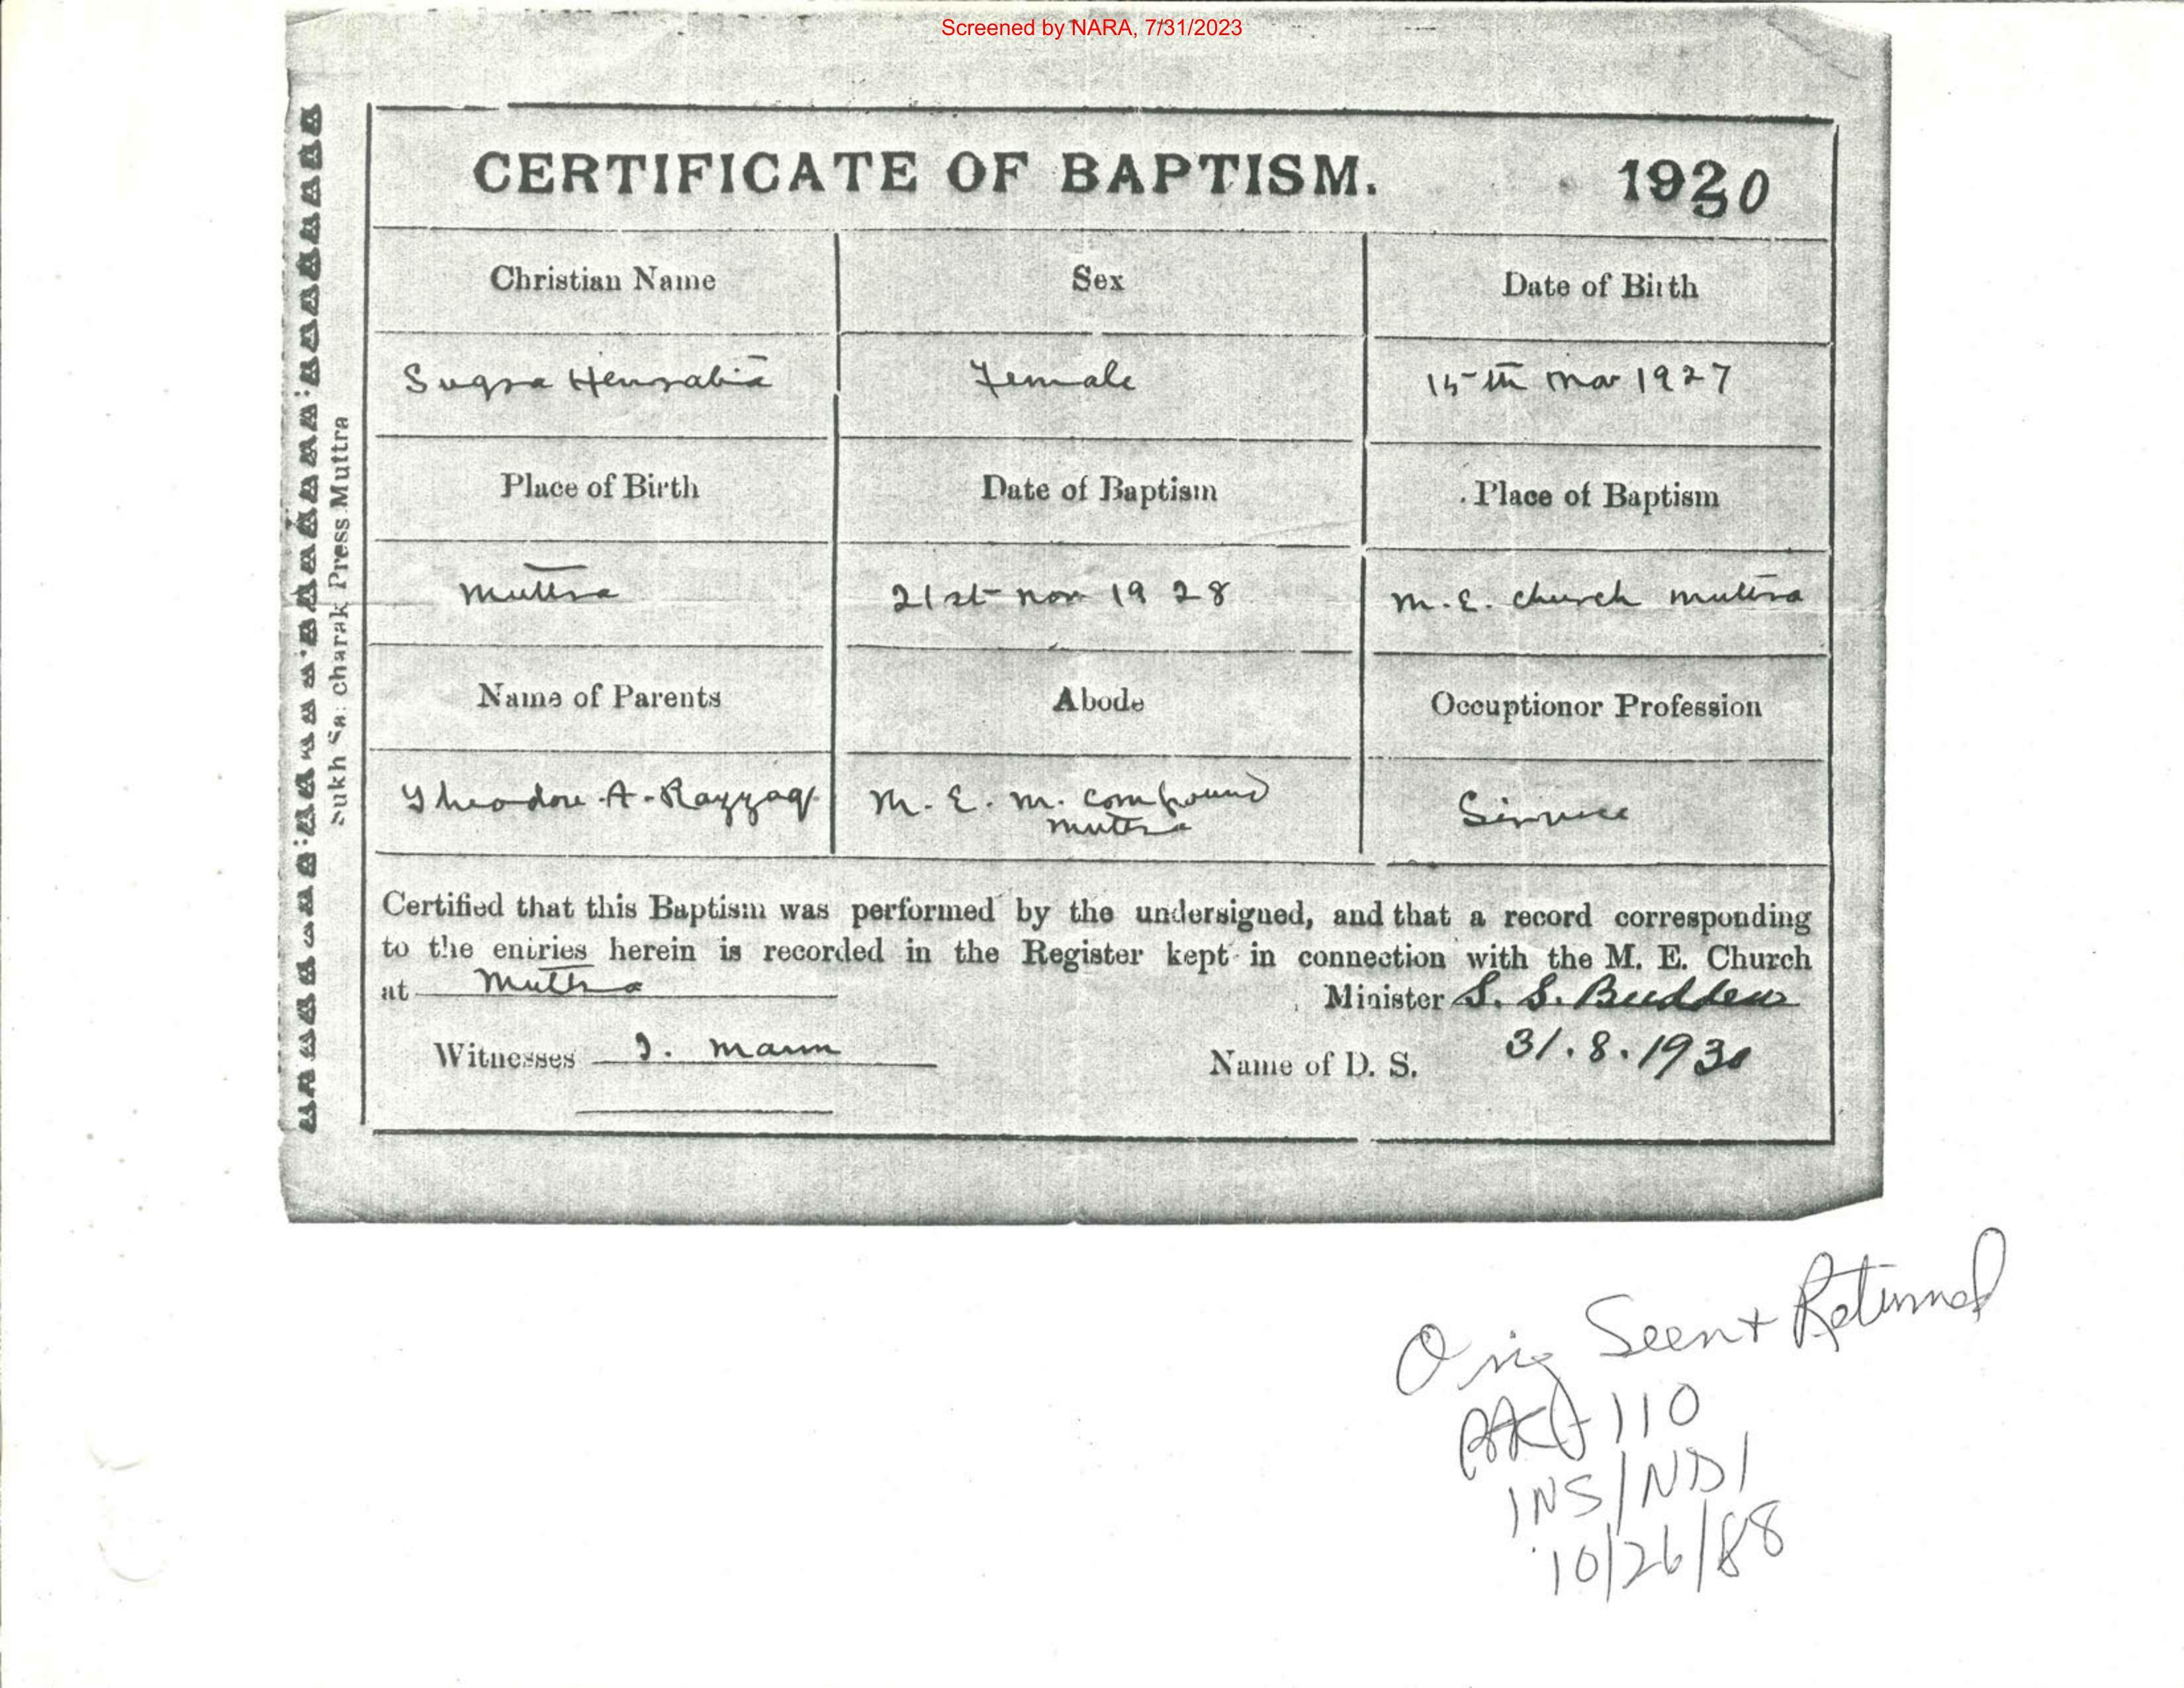 Screened by NARA, 7/31/2023
CERTIFICATE OF BAPTISM. 1930
Christian Name Sex Date of Birth
Sugra Female 15th Mar 1927
Place of Birth Date of Baptism Place of Baptism
Muttra 21st Nov 1928 M. E. Church Muttra
Name of Parents Abode Occuptionor Profession
Theodore A. Razzaq M. E. M. Compound
Muttra
Certified that this Baptism was performed by the undersigned, and that a record corresponding
to the entries herein is recorded in the Register kept in connection with the M. E. Church
at Muttra Minister S. S. Budden
Witnesses Mann Name of D. S. 31.8.1930
charak Press Muttra
Orig Seen + Returned
110
INS/NDI
10/26/88